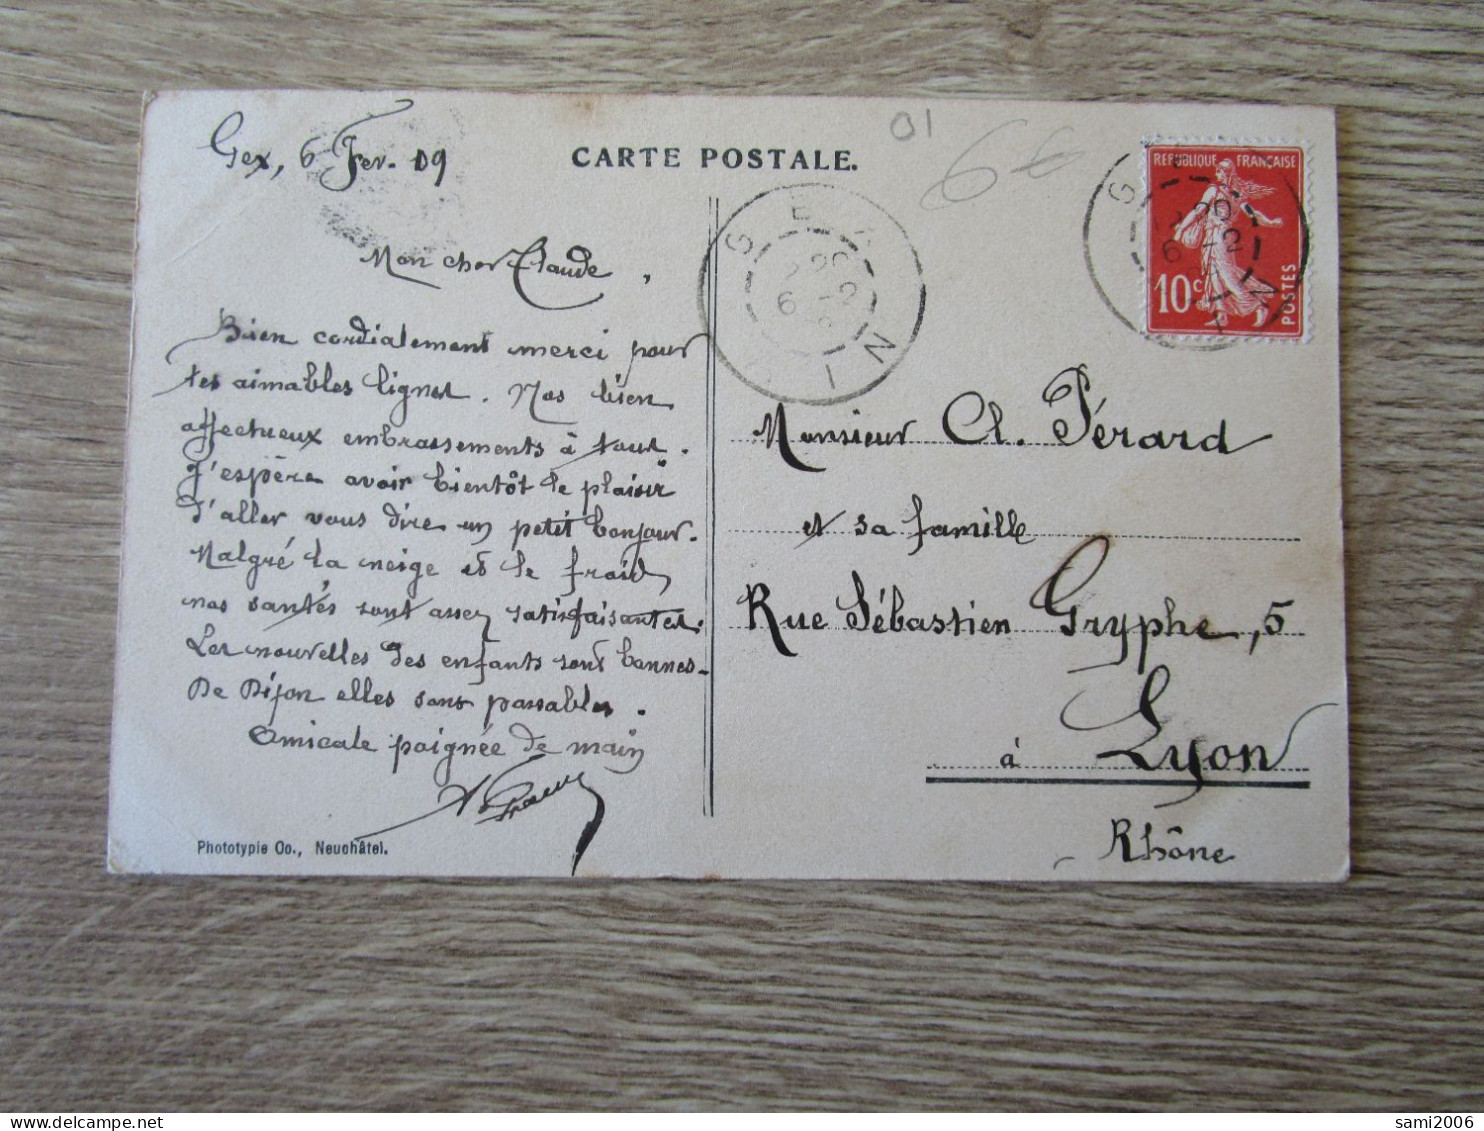 01
6 €
Gex, 6 Fev. 09
CARTE POSTALE.
REPUBLIQUE FRANÇAISE
10c
POSTES
GEX AIN
20
6 -2
Mon cher Claude,
Bien cordialement merci pour
tes aimables lignes. Nos bien
affectueux embrassements à tous.
J'espère avoir bientôt le plaisir
d'aller vous dire un petit bonjour.
Malgré la neige et le froid,
nos santés sont assez satisfaisantes.
Les nouvelles des enfants sont bonnes.
De Dijon elles sont passables.
Amicale poignée de main
Phototypie Co., Neuchâtel.
Monsieur Cl. Pérard
et sa famille
Rue Sébastien Gryphe, 5
à Lyon
Rhône
sami2006